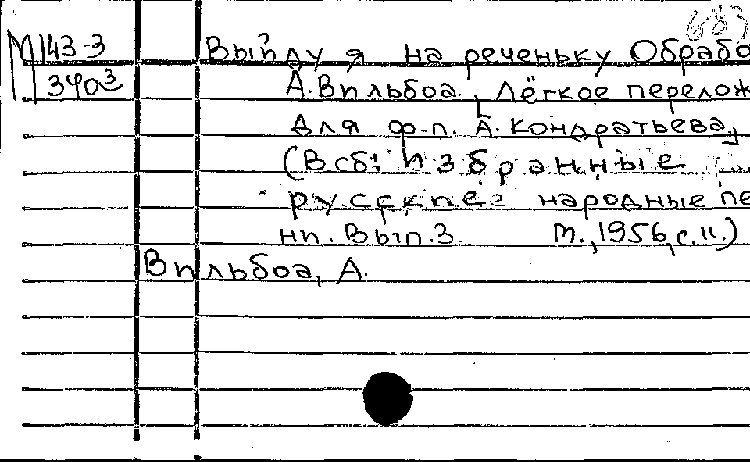 683
М 43-3 Выйду я на реченьку Обрабо
340³ А. Вильбоа. Лёгкое перелож
для ф-п. А. Кондратьева,
(В сб: Избранные
русские народные пе
ни. Вып. 3. М., 1956, с. 11.)
Вильбоа, А.